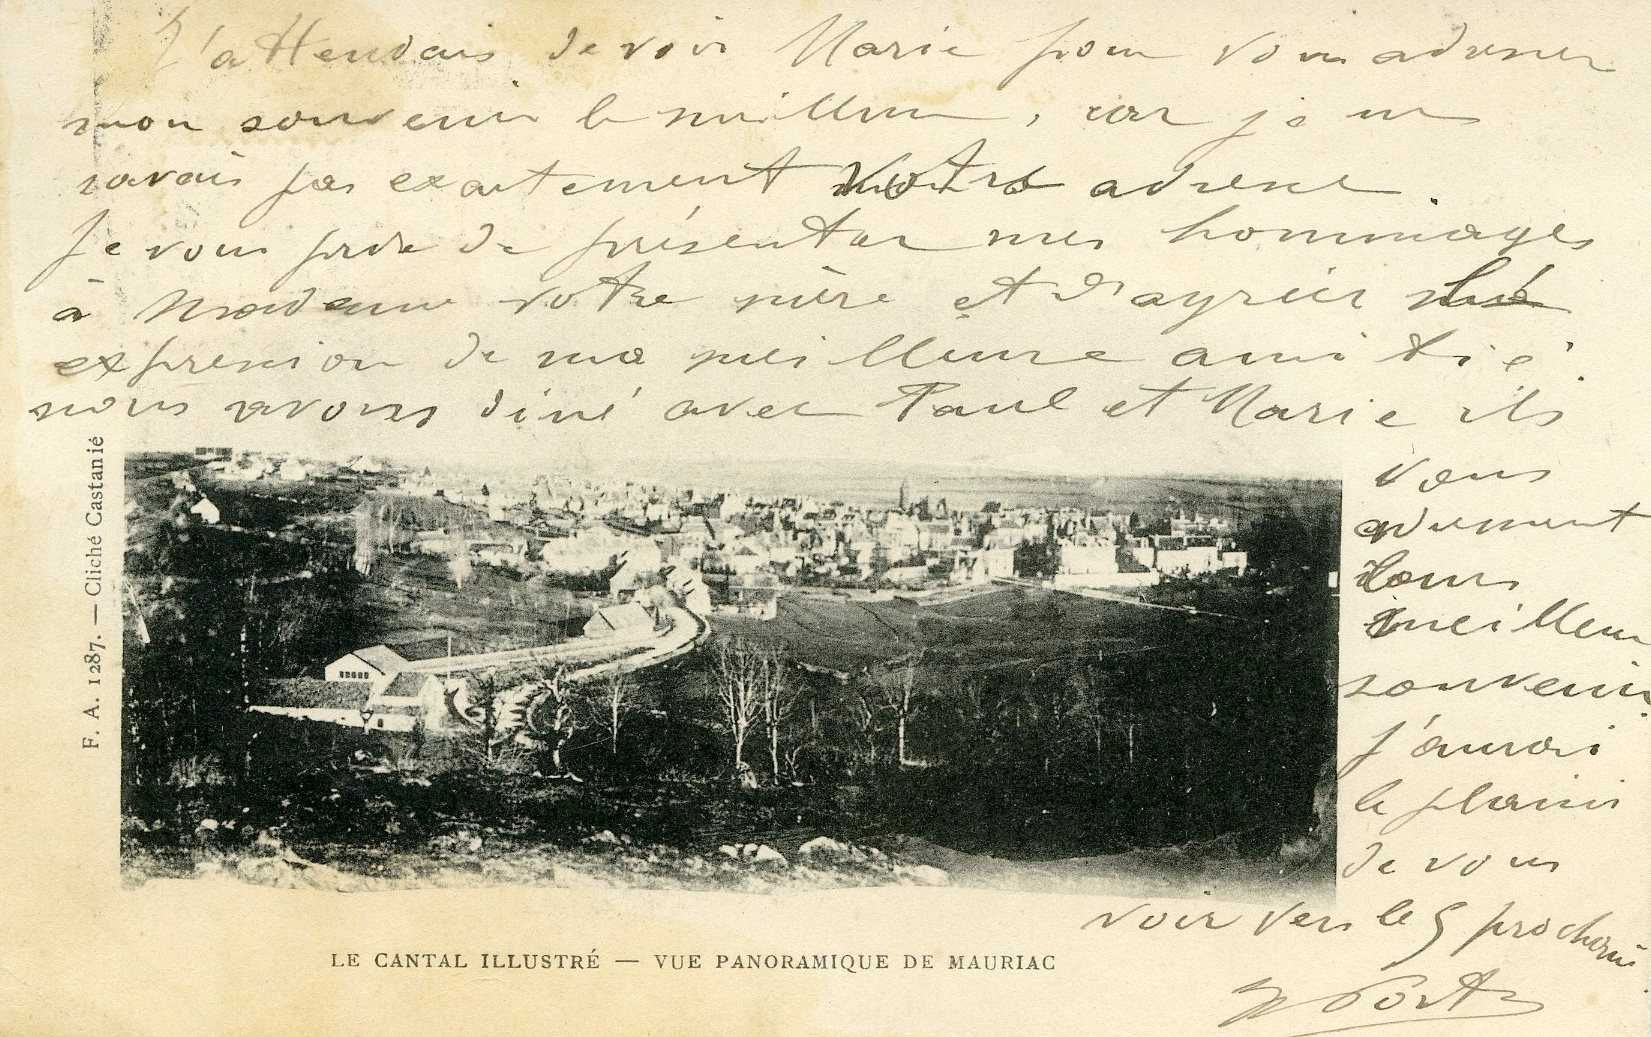 J'attendais de voir Marie pour vous adresser
mon souvenir le meilleur, car je ne
savais pas exactement votre adresse.
Je vous prie de présenter mes hommages
à Madame votre mère et d'agréer
expression de ma meilleure amitié.
nous avons diné avec Paul et Marie ils
vous
adressent
leurs
meilleurs
souvenirs
j'aurai
le plaisir
de vous
voir vers le 5 prochain
F. A. 1287. — Cliché Castanié
LE CANTAL ILLUSTRÉ — VUE PANORAMIQUE DE MAURIAC